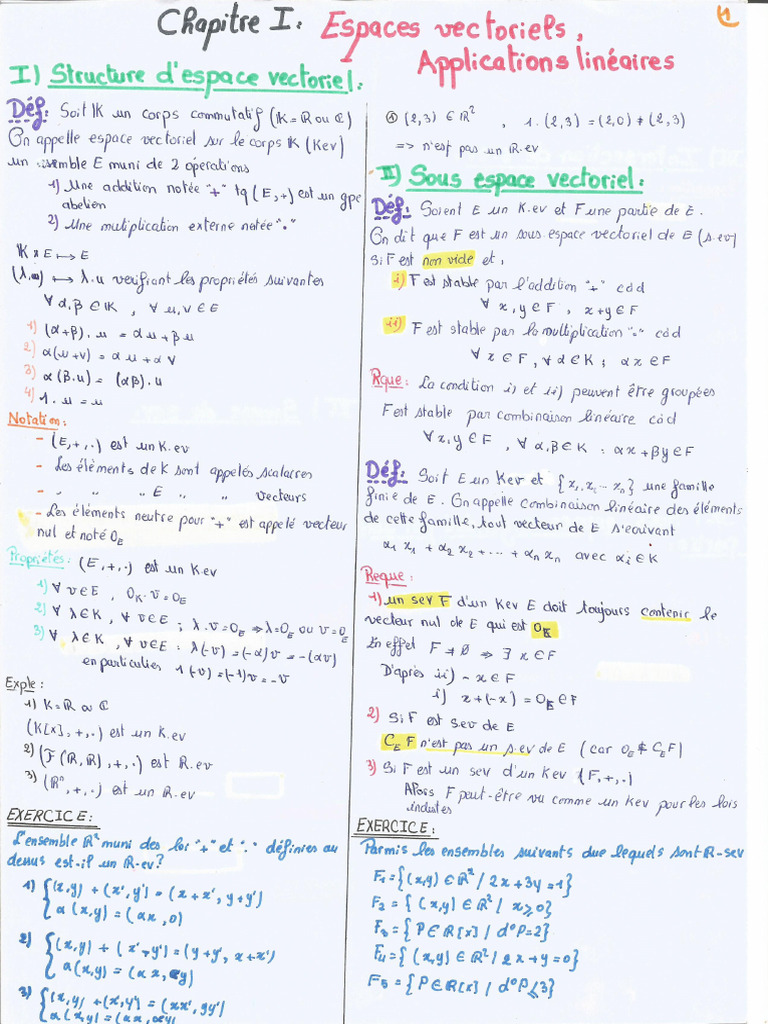 1
Chapitre I: Espaces vectoriels,
Applications linéaires
I) Structure d'espace vectoriel:
Déf: Soit K un corps commutatif (K = R ou C)
On appelle espace vectoriel sur le corps K (Kev)
un ensemble E muni de 2 opérations
1) Une addition notée "+" tq (E,+) est un gpe
abelien
2) Une multiplication externe notée "."
K x E ↦ E
(λ,u) ↦ λ.u verifiant les propriétés suivantes
∀ α,β ∈ K, ∀ u,v ∈ E
1) (α+β).u = αu + βu
2) α(u+v) = αu + αv
3) α(β.u) = (αβ).u
4) 1.u = u
Notation:
- (E,+,.) est un K.ev
- Les éléments de K sont appelés scalaires
- " " " E " " vecteurs
- Les éléments neutre pour "+" est appelé vecteur
nul et noté 0E
Propriétés: (E,+,.) est un K.ev
1) ∀ v∈E, 0K.v = 0E
2) ∀ λ∈K, ∀ v∈E ; λ.v=0E ⇒ λ=0E ou v=0E
3) ∀ λ∈K, ∀ v∈E : λ(-v) = (-α)v = -(αv)
en particulier 1(-v)=(-1)v = -v
Exple:
1) K = R ou C
(K[x],+,.) est un K.ev
2) (F(R,R),+,.) est R.ev
3) (Rⁿ,+,.) est un R.ev
EXERCICE:
L'ensemble R² muni des loi "+" et "." définies au
dessus est-il un R-ev?
1) {(x,y) + (x',y') = (x+x', y+y')
α(x,y) = (αx,0)
2) {(x,y) + (x',y') = (y+y', x+x')
α(x,y) = (αx, αy)
3) {(x,y) + (x',y') = (xx', yy')
α(x,y) = (αx, αy)
① (2,3) ∈ R², 1.(2,3) = (2,0) ≠ (2,3)
=> n'est pas un R.ev
II) Sous espace vectoriel:
Déf: Soient E un K.ev et F une partie de E.
On dit que F est un sous espace vectoriel de E (s.ev)
si F est non vide et,
i) F est stable par l'addition "+" càd
∀ x,y ∈ F, x+y ∈ F
ii) F est stable par la multiplication "." càd
∀ x ∈ F, ∀ α ∈ K ; αx ∈ F
Rque: La condition i) et ii) peuvent être groupées
F est stable par combinaison linéaire càd
∀ x,y ∈ F, ∀ α,β ∈ K : αx + βy ∈ F
Déf: Soit E un Kev et {x₁, x₂ ... xₙ} une famille
finie de E. On appelle combinaison linéaire des éléments
de cette famille, tout vecteur de E s'écrivant
α₁x₁ + α₂x₂ + ... + αₙxₙ avec αᵢ ∈ K
Reque:
1) un sev F d'un Kev E doit toujours contenir le
vecteur nul de E qui est 0E
En effet F ≠ Ø ⇒ ∃ x ∈ F
D'après ii) -x ∈ F
i) x+(-x) = 0E ∈ F
2) Si F est sev de E
CE F n'est pas un s.ev de E (car 0E ∉ CE F)
3) Si F est un sev d'un Kev (F,+,.)
Alors F peut-être vu comme un Kev pour les lois
induites
EXERCICE:
Parmis les ensembles suivants due lequels sont R-sev
F₁ = {(x,y) ∈ R² / 2x+3y=1}
F₂ = {(x,y) ∈ R² / x≥0}
F₃ = {P ∈ R[x] / d°P=2}
F₄ = {(x,y) ∈ R² / 2x+y=0}
F₅ = {P ∈ R[x] / d°P≤3}